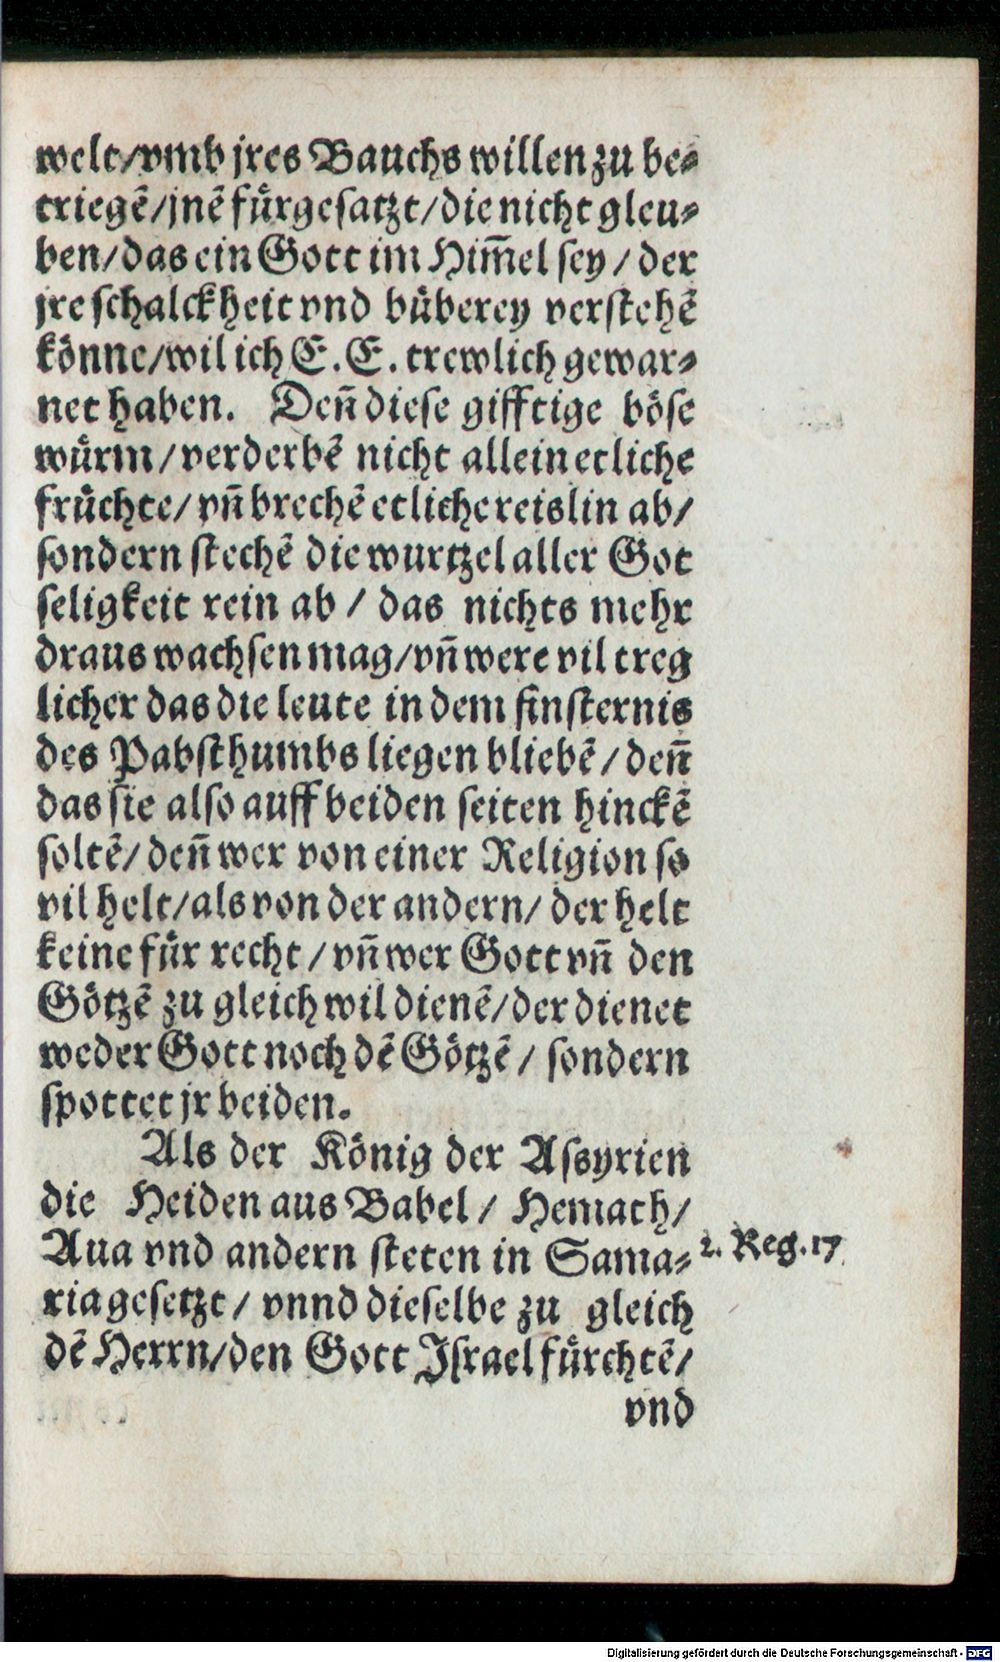 welt/vmb jres Bauchs willen zu be⸗
triegẽ/jnẽ fuͤrgesatzt/die nicht gleu⸗
ben/das ein Gott im Him̃el sey/der
jre schalckheit vnd buͤberey verstehẽ
koͤnne/wil ich E.E. trewlich gewar⸗
net haben. Deñ diese gifftige boͤse
wuͤrm/verderbẽ nicht allein etliche
fruͤchte/vñ brechẽ etliche reislin ab/
sondern stechẽ die wurtzel aller Got
seligkeit rein ab/das nichts mehr
draus wachsen mag/vñ were vil treg
licher das die leute in dem finsternis
des Pabsthumbs liegen bliebẽ/deñ
das sie also auff beiden seiten hinckẽ
soltẽ/deñ wer von einer Religion so
vil helt/als von der andern/der helt
keine fuͤr recht/vñ wer Gott vñ den
Goͤtzẽ zu gleich wil dienẽ/der dienet
weder Gott noch dẽ Goͤtzẽ/sondern
spottet jr beiden.
Als der Koͤnig der Assyrien
die Heiden aus Babel/Hemath/
Aua vnd andern steten in Sama⸗
ria gesetzt/vnnd dieselbe zu gleich
dẽ Herrn/den Gott Israel fuͤrchtẽ/
vnd
2. Reg. 17
Digitalisierung gefördert durch die Deutsche Forschungsgemeinschaft - DFG